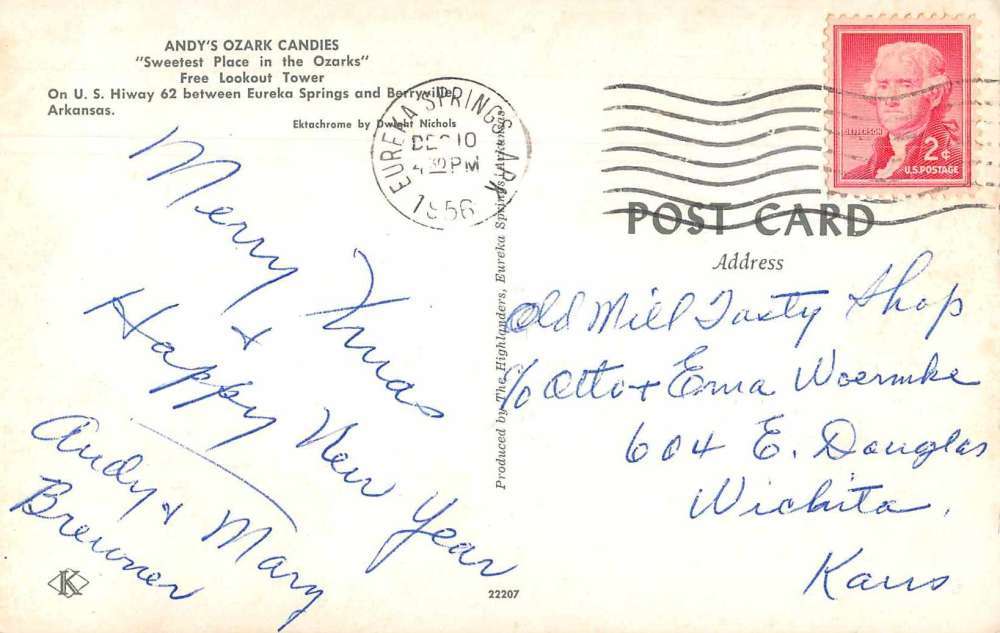 ANDY'S OZARK CANDIES
"Sweetest Place in the Ozarks"
Free Lookout Tower
On U. S. Hiway 62 between Eureka Springs and Berryville,
Arkansas.
Ektachrome by Dwight Nichols
EUREKA SPRINGS ARK
DEC 10
4 30 PM
1956
JEFFERSON
2¢
U.S. POSTAGE
Merry Xmas
+
Happy New Year
Andy + Mary
Brewner
K
Produced by The Highlanders, Eureka Springs, Arkansas
22207
POST CARD
Address
Old Mill Tasty Shop
c/o Otto + Erna Woermke
604 E. Douglas
Wichita,
Kans